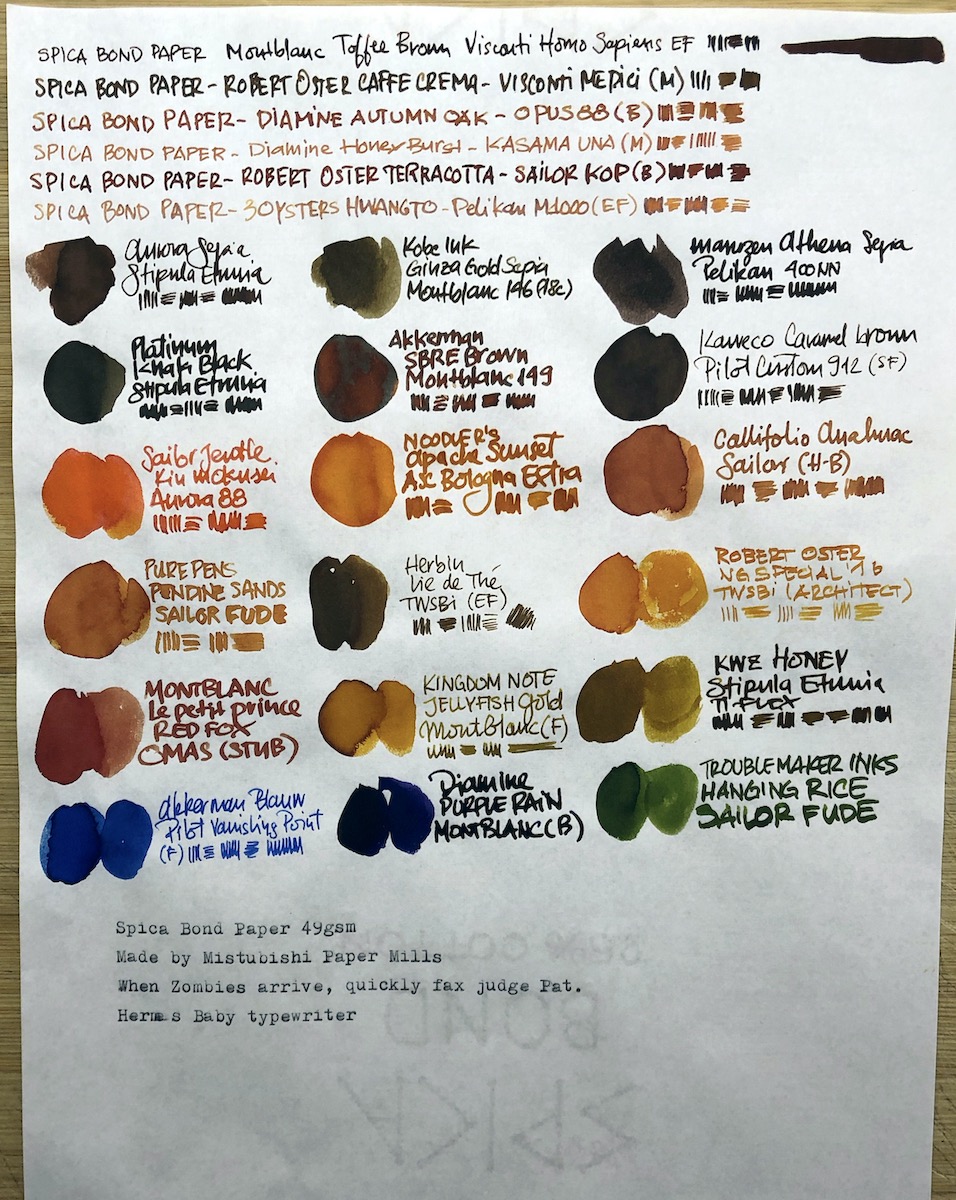 SPICA BOND PAPER Montblanc Toffee Brown Visconti Homo Sapiens EF
SPICA BOND PAPER - ROBERT OSTER CAFFE CREMA - VISCONTI MEDICI (M)
SPICA BOND PAPER - DIAMINE AUTUMN OAK - OPUS 88 (B)
SPICA BOND PAPER - Diamine Honey Burst - KASAMA UNA (M)
SPICA BOND PAPER - ROBERT OSTER TERRACOTTA - SAILOR KOP (B)
SPICA BOND PAPER - 3OYSTERS HWANGTO - Pelikan M1000 (EF)
Aurora Sepia
Stipula Etruria
Kobe Ink
Ginza Gold Sepia
Montblanc 146 (18c)
Maruzen Athena Sepia
Pelikan 400NN
Platinum
Khaki Black
Stipula Etruria
Akkerman
SBRE Brown
Montblanc 149
Kaweco Caramel brown
Pilot Custom 912 (SF)
Sailor Jentle
Kin Mokusei
Aurora 88
NOODLER's
Apache Sunset
ASC Bologna Extra
Callifolio Anahuac
Sailor (H-B)
PURE PENS
PENDINE SANDS
SAILOR FUDE
Herbin
Lie de Thé
TWSBi (EF)
ROBERT OSTER
NG SPECIAL '16
TWSBi (ARCHITECT)
MONTBLANC
Le petit prince
RED FOX
OMAS (STUB)
KINGDOM NOTE
JELLYFISH Gold
Montblanc (F)
KWZ HONEY
Stipula Etruria
Ti FLEX
Akkerman Blauw
Pilot Vanishing Point
(F)
Diamine
PURPLE RAIN
MONTBLANC (B)
TROUBLEMAKER INKS
HANGING RICE
SAILOR FUDE
Spica Bond Paper 49gsm
Made by Mistubishi Paper Mills
When Zombies arrive, quickly fax judge Pat.
Hermes Baby typewriter
BOND
SPICA